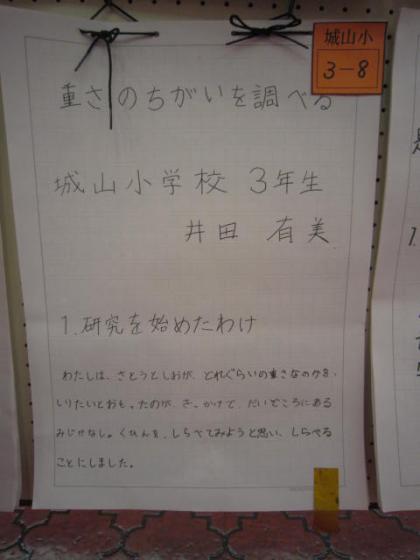 城山小
3-8
重さのちがいを調べる
城山小学校 3年生
井田 有美
1.研究を始めたわけ
わたしは、さとうとしおが、どれぐらいの重さなのかを、
しりたいとおもったのが、きっかけで、だいどころにある
みじかな
しらべてみようと思い、しらべる
ことにしました。
1.